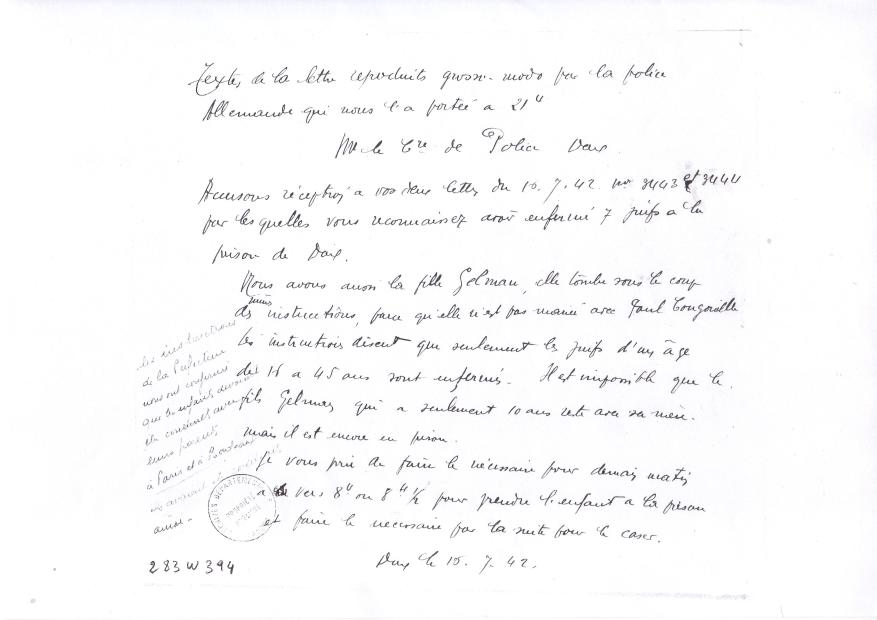 Textes de la lettre reproduits grosso-modo par la police
Allemande qui nous l'a portée a 21 h
Mr le Cre de Police Dax.
Accusons réception a vos deux lettres du 15.7.42 no 3443 et 3444
par lesquelles vous reconnaissez avoir enfermé 7 juifs a la
prison de Dax.
Nous avons aussi la fille Gelman, elle tombe sous le coup
des mêmes instructions, parce qu'elle n'est pas mariée avec Paul
Les instructions disent que seulement les juifs d'un âge
de 16 a 45 ans sont enfermés. Il est impossible que le
fils Gelman qui a seulement 10 ans reste avec sa mère.
mais il est encore en prison.
Je vous prie de faire le nécessaire pour demain matin
a vers 8 h ou 8 h 1/2 pour prendre l'enfant a la prison
et faire le necessaire par la suite pour le caser.
Dax le 15.7.42.
les instructions
de la Préfecture
nous ont
que les enfants
être avec
leurs parents
à Paris et à Bordeaux
ainsi.
283 W 394